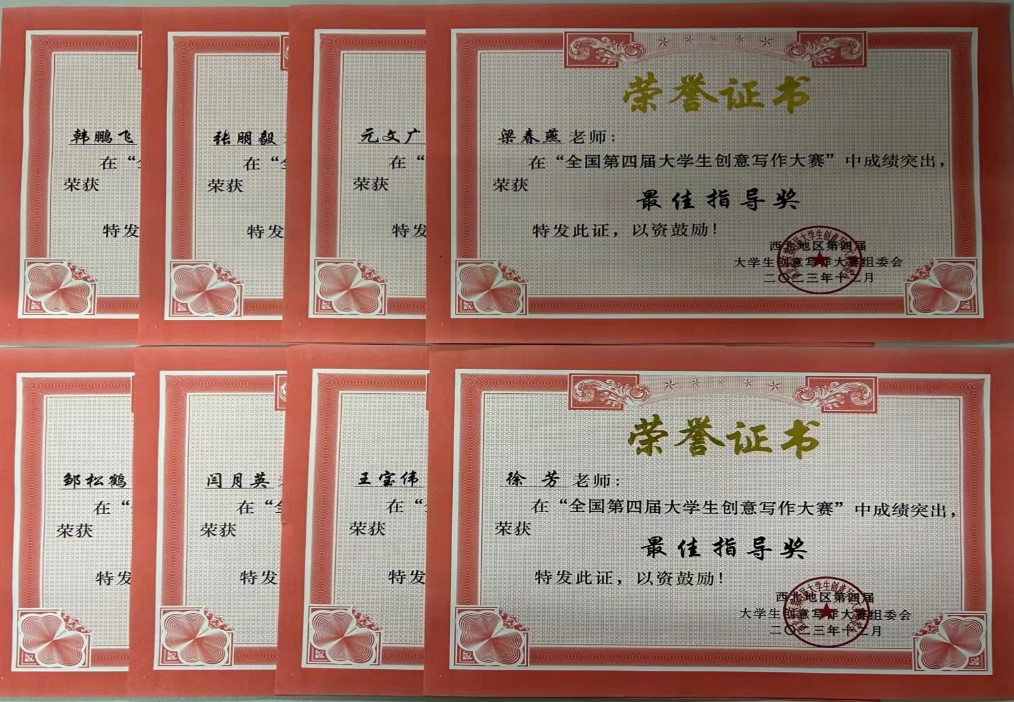 韩鹏飞
在“全
荣获
特发
张朋毅
在“全
荣获
特发
元文广
在“
荣获
特发
荣誉证书
梁春燕 老师：
在“全国第四届大学生创意写作大赛”中成绩突出，
荣获
最佳指导奖
特发此证，以资鼓励！
西北地区第四届
大学生创意写作大赛组委会
二〇二三年十二月
邹松鹤
在“
荣获
特发
闫月英
在“全
荣获
特发
王宝伟
在“
荣获
特发
荣誉证书
徐 芳 老师：
在“全国第四届大学生创意写作大赛”中成绩突出，
荣获
最佳指导奖
特发此证，以资鼓励！
西北地区第四届
大学生创意写作大赛组委会
二〇二三年十二月